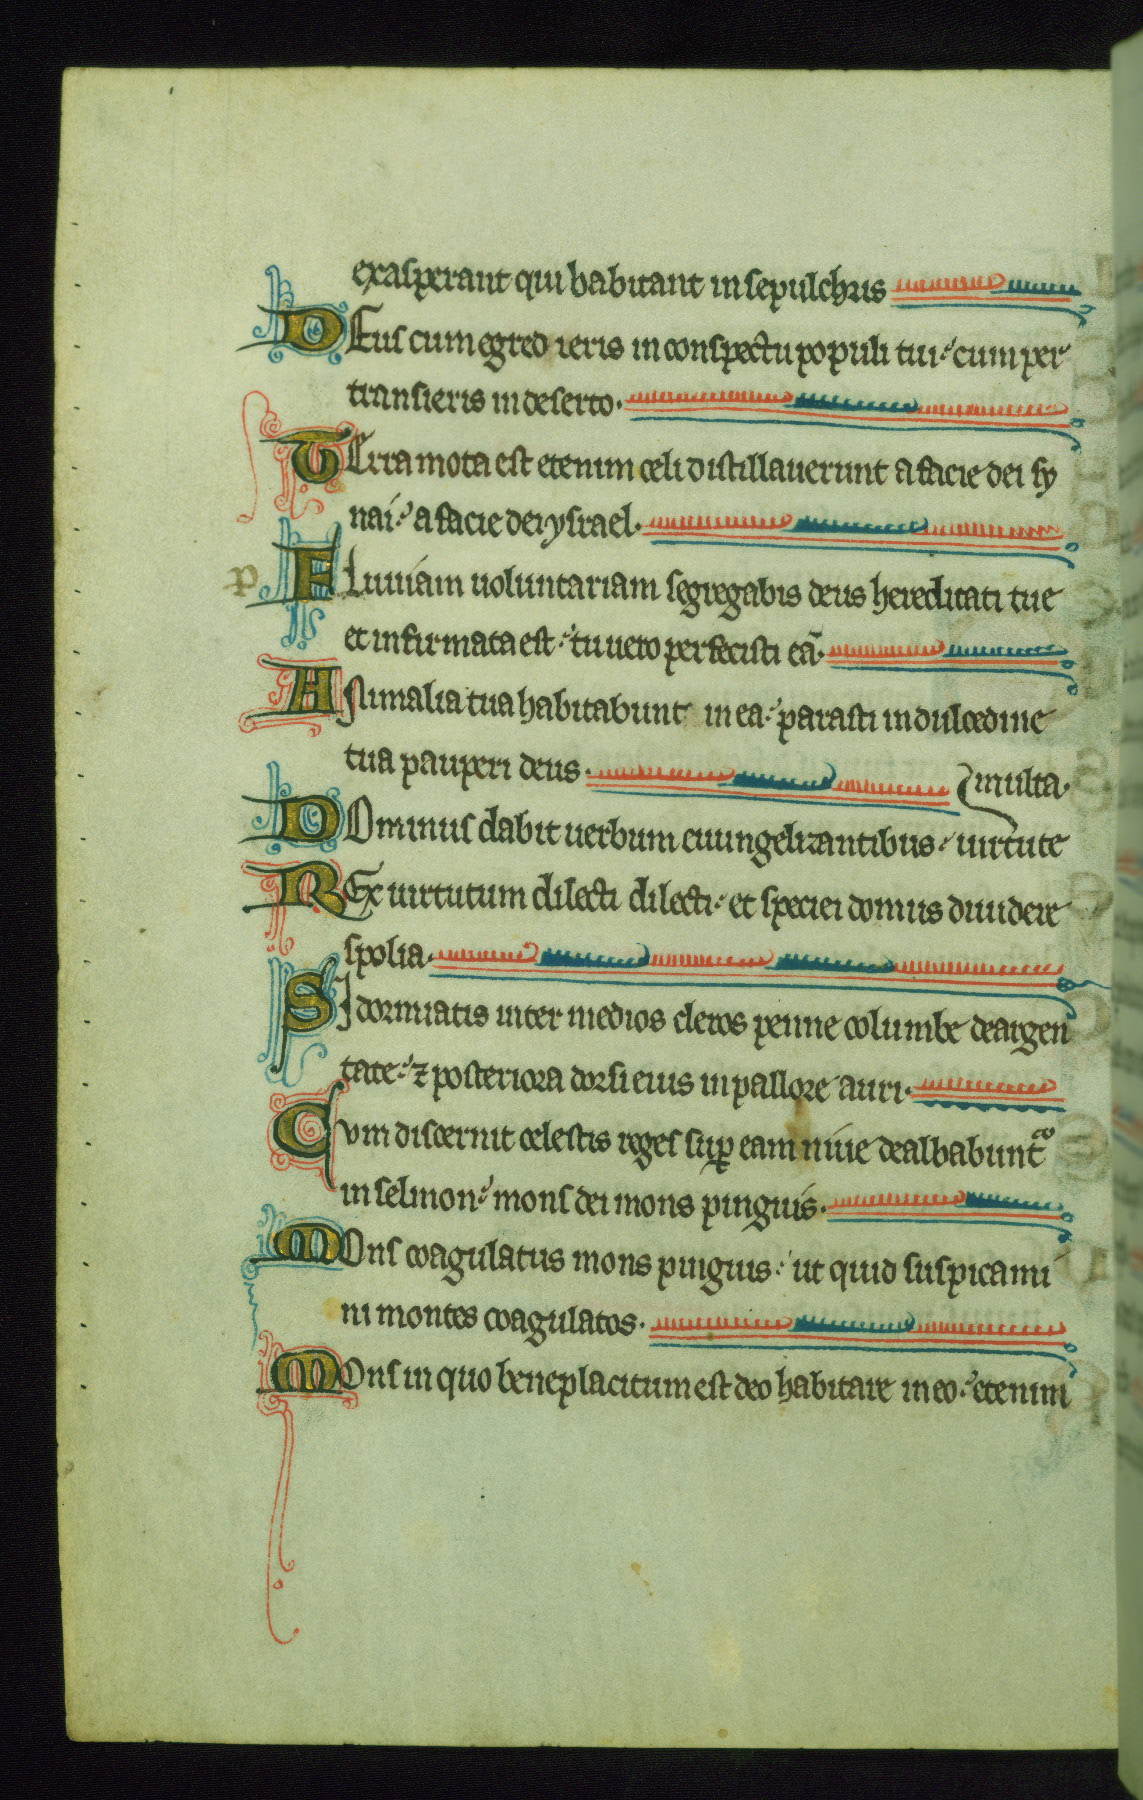 exasperant qui habitant in sepulchris
DEus cum egred ieris in conspectu populi tui cum per
transieris in deserto.
TErra mota est etenim celi distillauerunt a facie dei sy
nai a facie dei ysrael.
p FLuuiam uoluntariam segregabis deus hereditati tue
et infirmata est tu uero perfecisti eā.
ANimalia tua habitabunt in ea parasti in dulcedine
tua pauperi deus. multa.
DOminus dabit uerbum euungelizantibus uirtute
REx uirtutum dilecti dilecti et speciei domus diuidere
spolia.
SI dormiatis inter medios cleros penne columbe deargen
tate ⁊ posteriora dorsi eius in pallore auri.
Cum discernit celestis reges sup̱ eam niue dealbabuntͨᵒ
in selmon mons dei mons pinguis.
MOns coagulatus mons pinguis ut quid suspicami
ni montes coagulatos.
MOns in quo beneplacitum est deo habitare in eo etenim